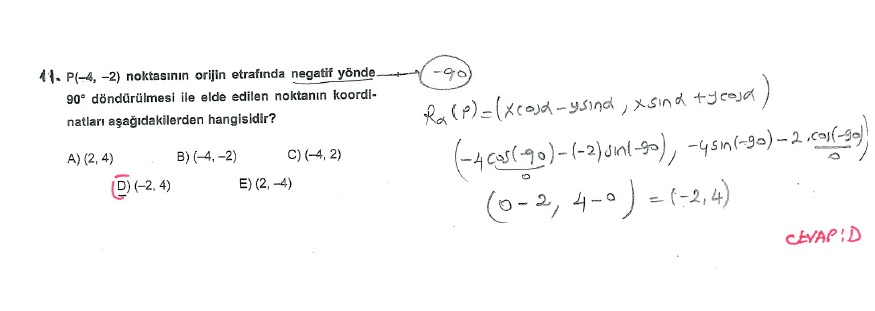 11. P(–4, –2) noktasının orijin etrafında negatif yönde → -90
90° döndürülmesi ile elde edilen noktanın koordi-
natları aşağıdakilerden hangisidir?
A) (2, 4) B) (–4, –2) C) (–4, 2)
D) (–2, 4) E) (2, –4)
Rα(P)=(xcosα-ysinα, xsinα+ycosα)
(-4cos(-90)-(-2)sin(-90), -4sin(-90)-2.cos(-90))
0 0
(0-2, 4-0) = (-2,4)
CEVAP:D